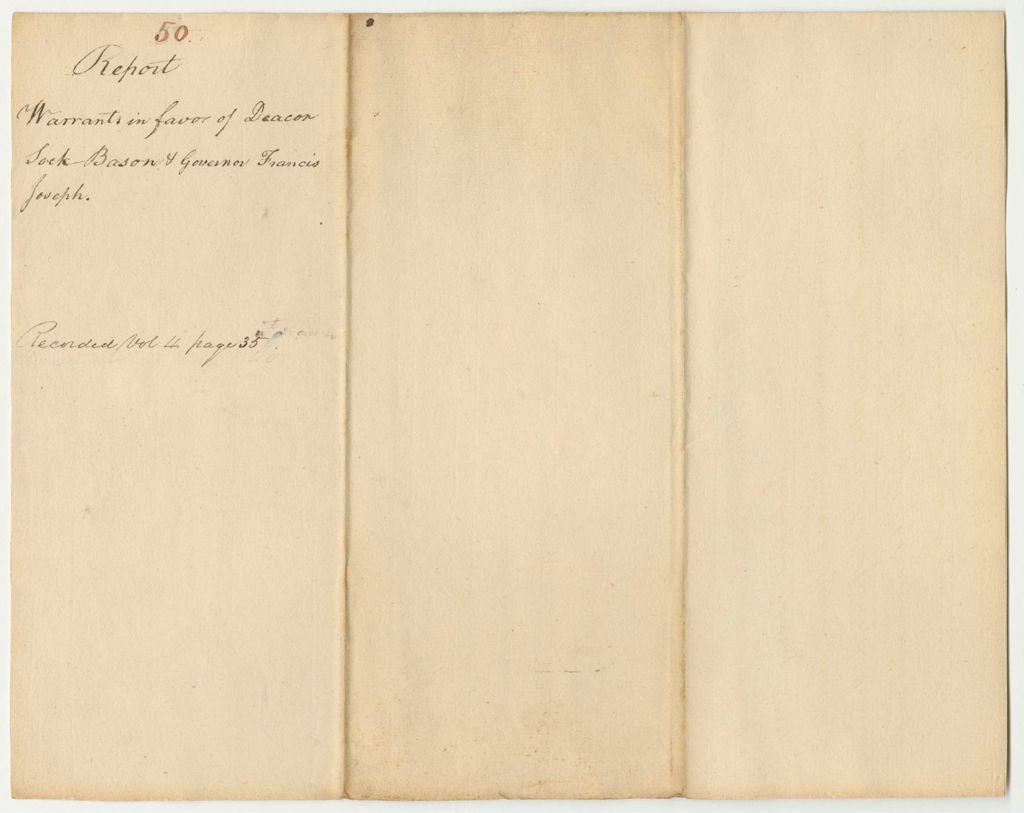 50.
Report
Warrants in favor of Deacon
Sock Bason & Governor Francis
Joseph.
Recorded Vol 4 page 35